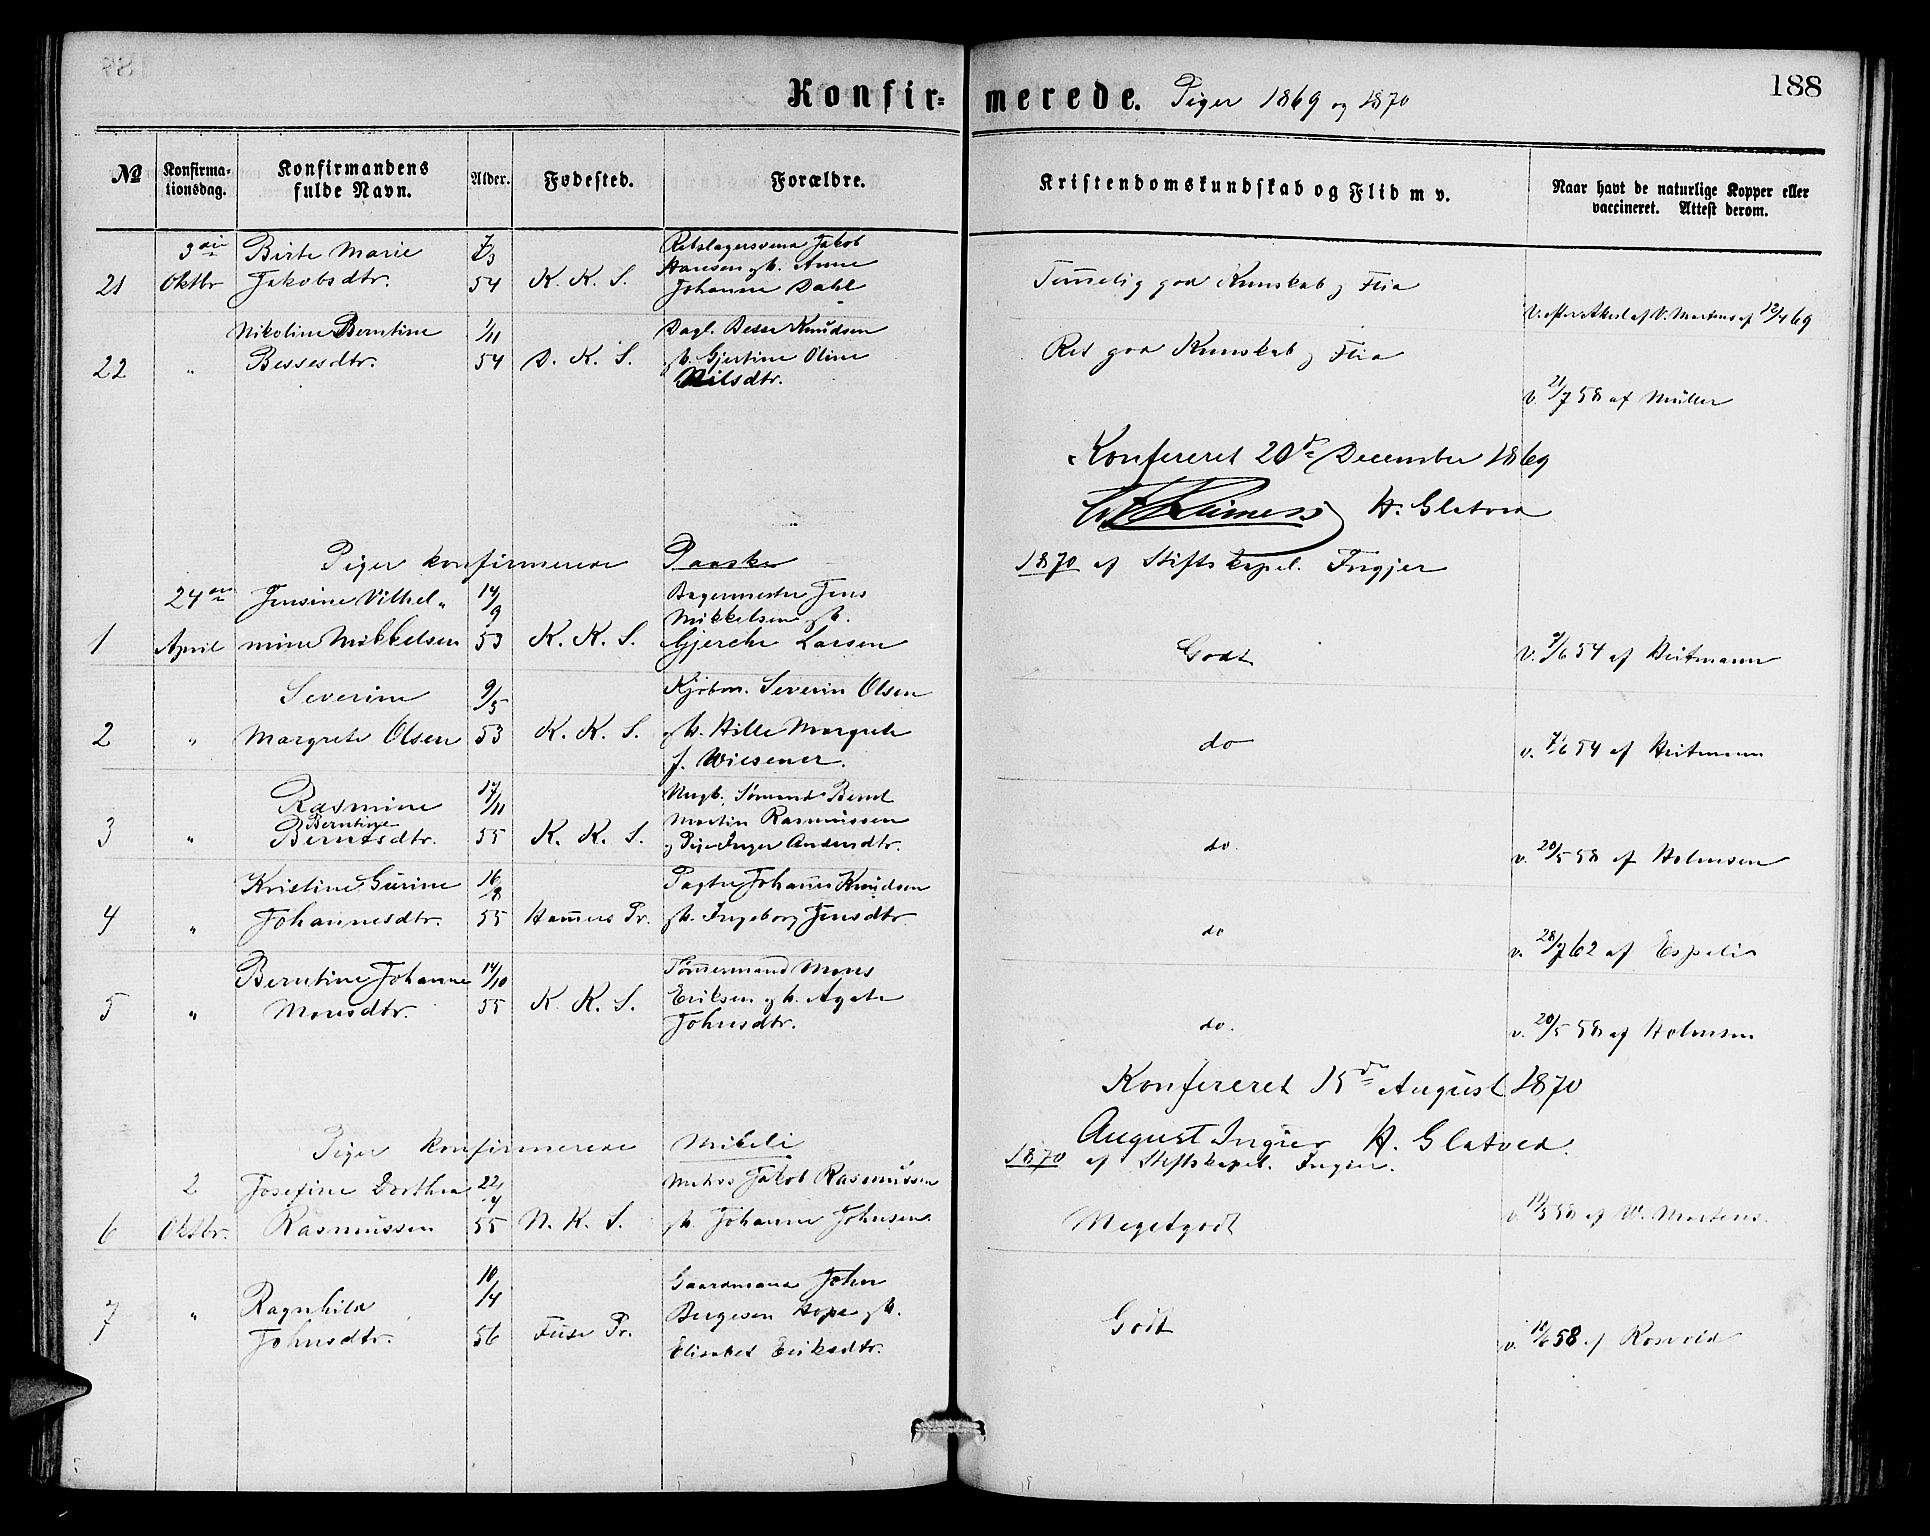 Konfir=merede. Piger 1869 og 1870
188
№
Konfirma-
tionsdag.
Konfirmandens
fulde Navn.
Alder.
Fødested.
Forældre.
Kristendomskundskab og Flid m v.
Naar havt de naturlige Kopper eller
vaccineret. Attest derom.
3die Birte Marie 7/3 Rebslagersvend Jakob
Hansen og h. Anne
21 Oktbr Jakobsdtr. 54 K. K. S. Johanne Dahl
Temmelig god Kunskab og Flid
12/4 69
Nikoline Berntine 1/11 Dagl. Besse Knudsen
22 " Bessesdtr. 54 D. K. S. og h. Gjertine Oline
Nilsdtr.
Ret god Kunskab og Flid
v. 21/7 58 af Müller
Konfereret 20de December 1869
H. Glatved
Piger konfirmerede Paaske 1870 af Stiftskapel. Ingjer
24de Jensine Vilhel- 14/9 Bagermester Jens
Mikkelsen og h.
1 April mine Mikkelsen 53 K. K. S. Gjerche Larsen
Godt
v. 9/6 54 af Heitmann
Severine 9/5 Kjøbm. Severin Olsen
2 " Margrete Olsen 53 K. K. S. og h. Hille Margrete
f. Wiesener.
do
v. 7/6 54 af Heitmann
Rasmine 17/11 Ungk. Sømand Bernt
Berntine Martin Rasmussen
3 " Berntsdtr. 55 K. K. S. og Pige Inger Andersdtr.
do.
v. 20/5 58 af Holmsen
Kristine Gurine 16/8 Pagter Johannes Knudsen
4 " Johannesdtr. 55 Hammers Pr. og h. Ingeborg Jensdtr.
do
v. 28/7 62 af Espeli
Berntine Johanne 14/10 Tømmermand Mons
5 " Monsdtr. 55 K. K. S. Eriksen og h. Agate
Johnsdtr.
do.
v. 20/5 58 af Holmsen
Konfereret 15de August 1870
August Ingier H. Glatved.
Piger konfirmerede Mikeli 1870 af Stiftskapel. Ingier.
2 Josefine Dorthea 22/4 Matros Jakob Rasmussen
6 Oktbr. Rasmussen 55 N. K. S. og h. Johanne Johnsen.
Megetgodt
af W. Martens.
Ragnhild 10/4 Gaardmand John
7 " Johnsdtr. 56 Fuse Pr. Børgesen Hope og h.
Elisabet Eriksdtr.
Godt
v. 18/6 58 af Rosvold